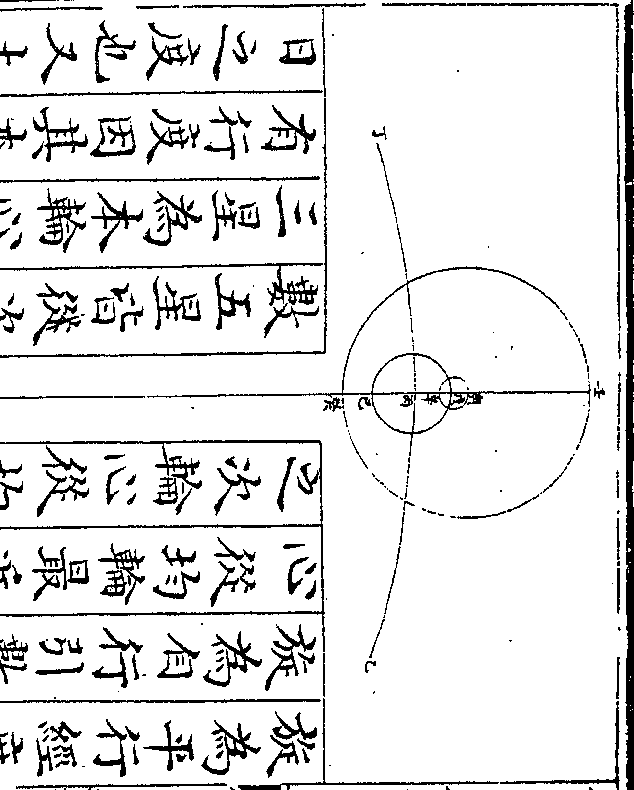 旋為平行經
旋為自行引數
心從均輪最近
之次輪心從均
數五星皆從次
三星為本輪心
有行度因其本
日之度也又土
壬
辛
丙
己
癸
丁
乙